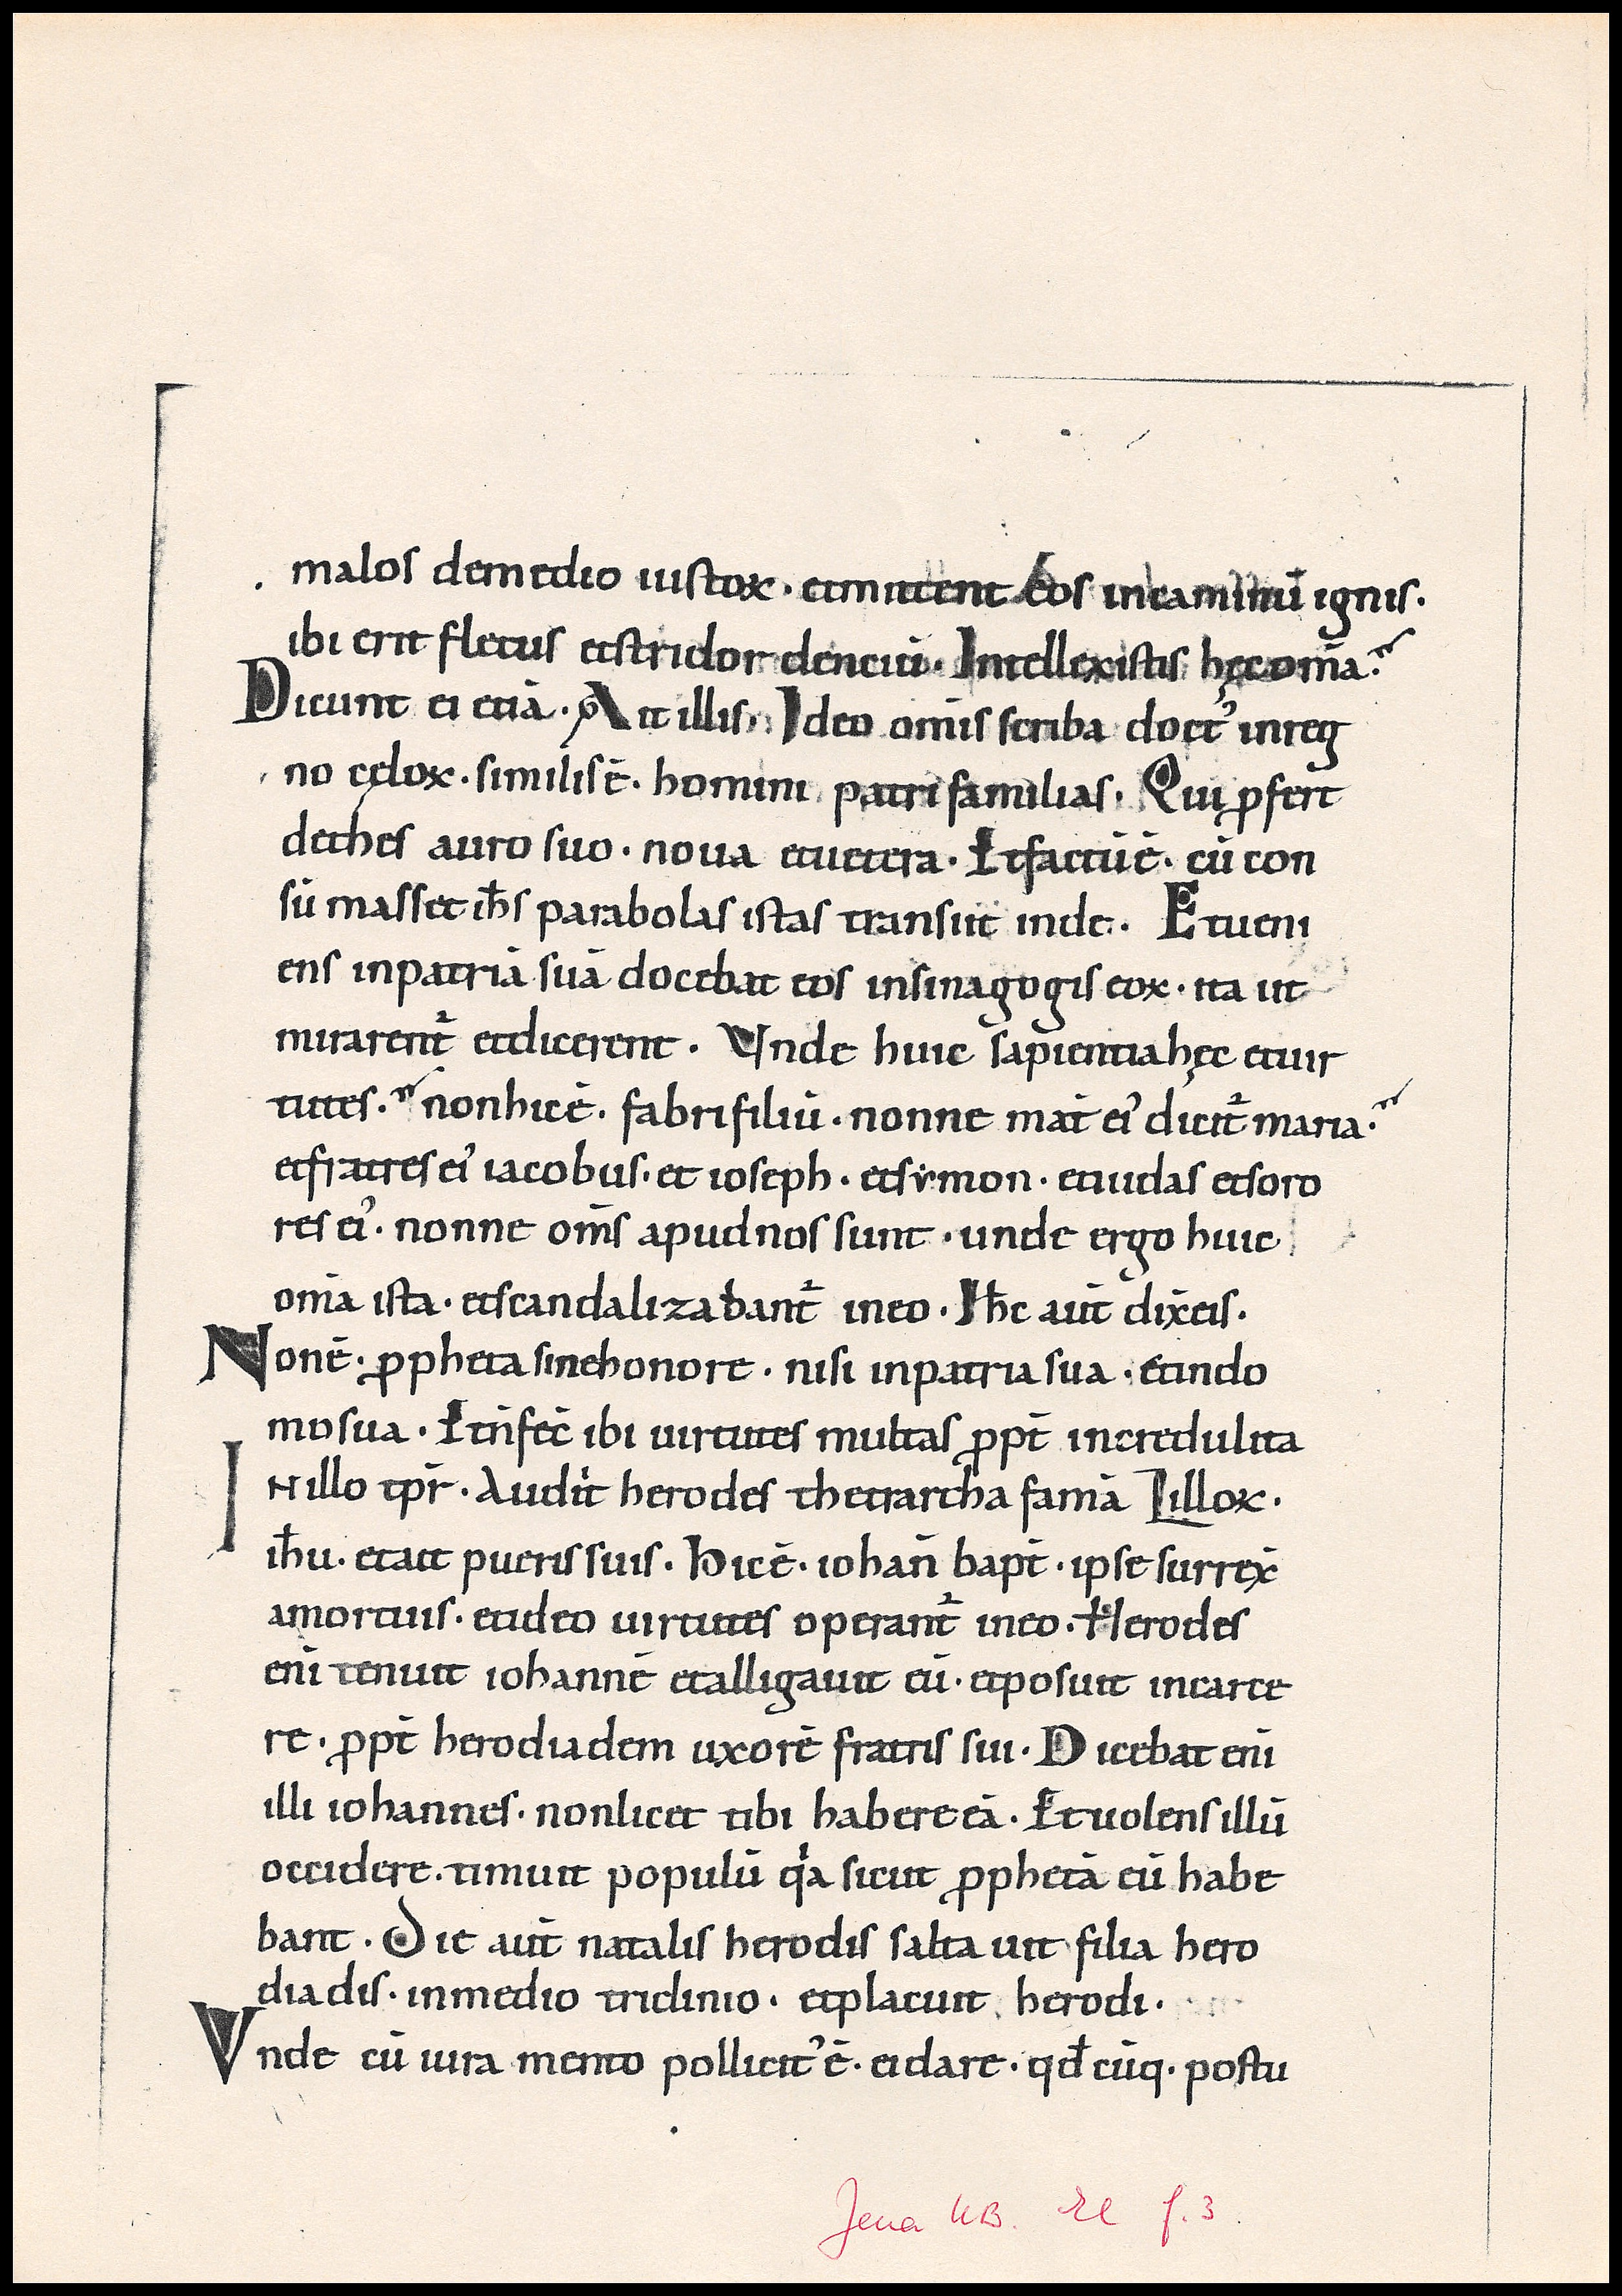 malos demedio iustoꝝ · etmittent eos incaminū ignis ·
ibi erit fletus etstridor dentiū · Intellexistis hęc om̄a ·
Dicunt ei etiā · Ait illis · Ideo om̄is scriba doct᾽ inreg
no cęloꝝ · similis ē · homini patri familias · Qui ꝓfert
dethes auro suo · noua etuetera · Et factū ē · cū con
sūmasset ih̄s parabolas istas transiit inde · Et ueni
ens inpatriā suā docebat eos insinagogis eoꝝ · ita ut
mirarent᷑ etdicerent · Vnde huic sapientia hęc etuir
tutes · nonhic ē · fabri filiū · nonne mat̄ ei᾽ dicit᷑ maria ·
etfratres ei᾽ iacobus · et ioseph · etsẏmon · etiudas etsoro
res ei᾽ · nonne om̄s apudnos sunt · unde ergo huic
om̄a ista · etscandalizabant᷑ ineo · Ih̄c aut̄ dix̄ eis ·
Non ē · ꝓpheta sinehonore · nisi inpatria sua · etindo
mo sua · Et n̄ fec̄ ibi uirtutes multas ꝓpt̄ incredulita
IN illo tp̄r · Audiit herodes thetrarcha famā illoꝝ ·
ih̄u · etait pueris suis · Hic ē · iohan̄ bapt̄ · ipse surrex̄
amortuis · etideo uirtutes operant᷑ ineo · Herodes
eni̅ tenuit iohannē etalligauit eū · etposuit incarce
re · ꝓpt̄ herodiadem uxorē fratris sui · Dicebat eni̅
illi iohannes · nonlicet tibi habere eā · Et uolens illū
occidere · timuit populū qͥa sicut ꝓphetā eū habe
bant · Die aut̄ natalis herodis saltauit filia hero
diadis · inmedio triclinio · etplacuit herodi ·
Vnde cū iuramento pollicit᾽ ē · ei dare · qd̄ cūq · postu
Jena UB. El f. 3.